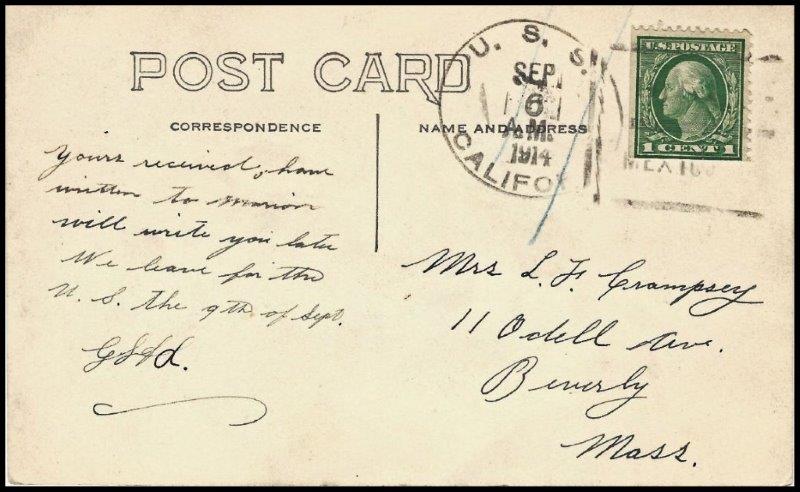 POST CARD
CORRESPONDENCE
NAME AND ADDRESS
U. S. S.
SEP
6
A.M.
1914
CALIFO
U.S. POSTAGE
1 CENT 1
MEXICO
Yours received, have
written to Marion
will write you later
We leave for the
U. S. the 9th of Sept.
Mrs L. F. Crampsey
11 Odell Ave.
Beverly
Mass.